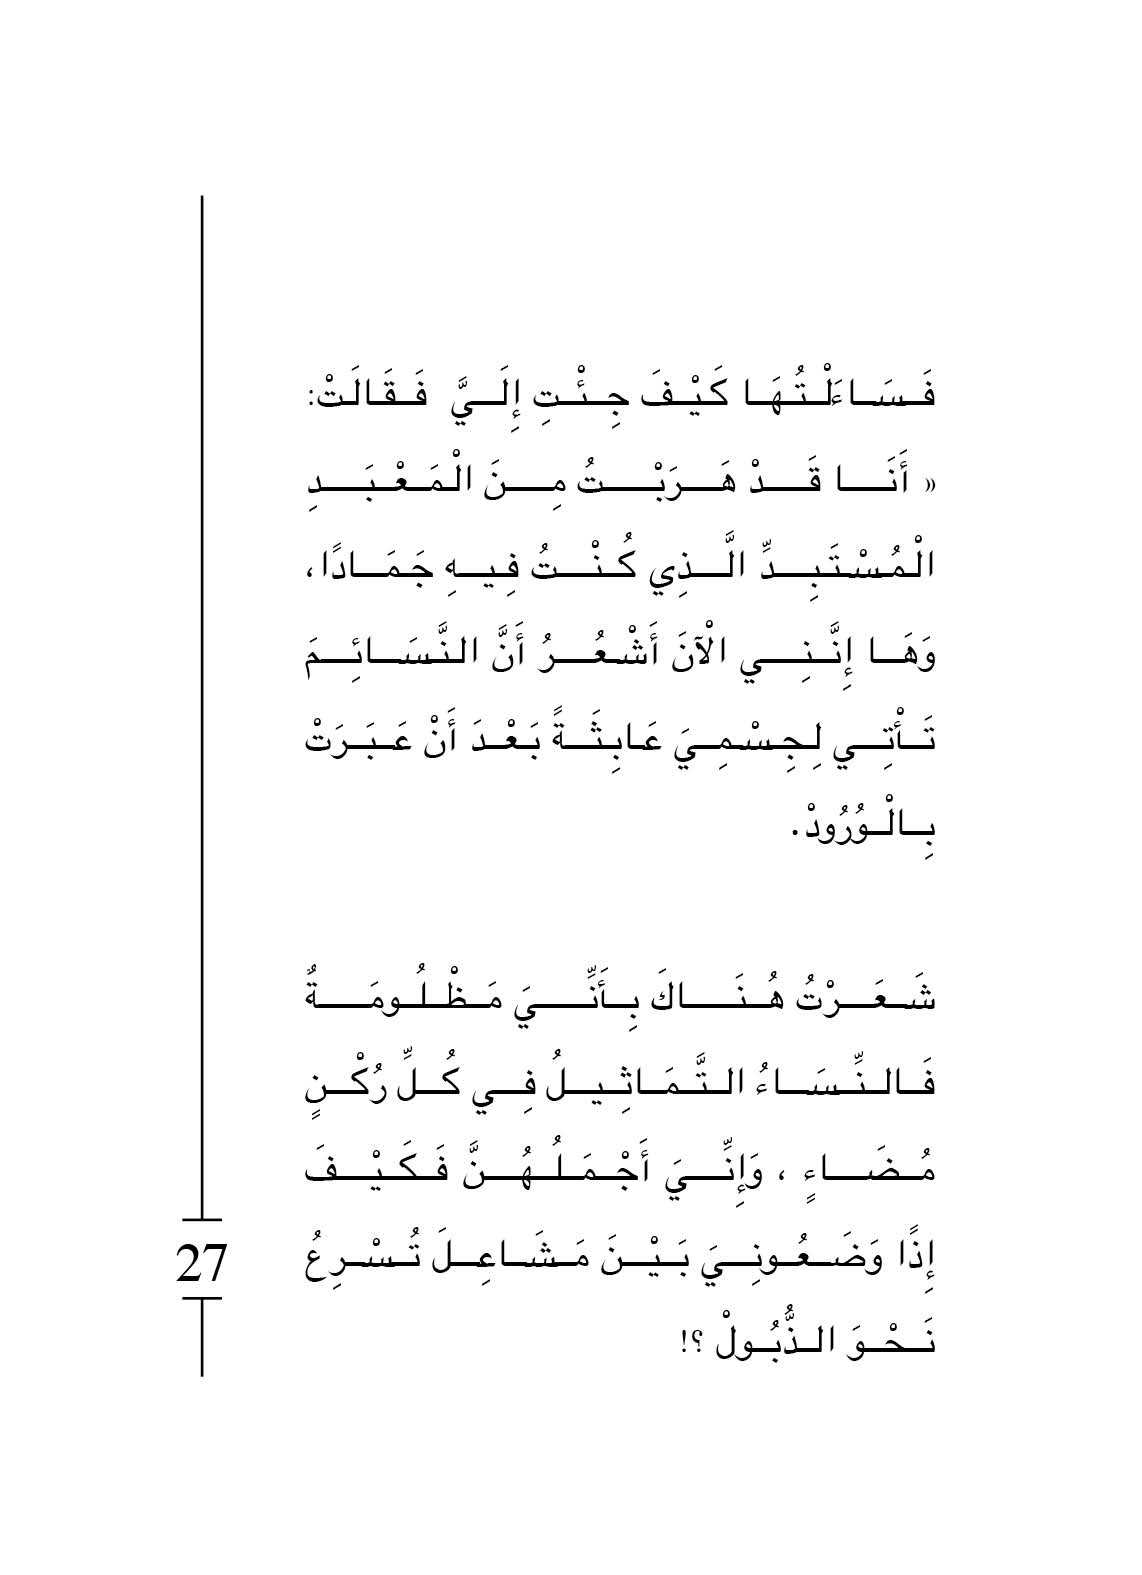 فَسَاءَلْتُهَا كَيْفَ جِئْتِ إِلَيَّ فَقَالَتْ:
« أَنَا قَدْ هَرَبْتُ مِنَ الْمَعْبَدِ
الْمُسْتَبِدِّ الَّذِي كُنْتُ فِيهِ جَمَادًا،
وَهَا إِنَّنِي الْآنَ أَشْعُرُ أَنَّ النَّسَائِمَ
تَأْتِي لِجِسْمِيَ عَابِثَةً بَعْدَ أَنْ عَبَرَتْ
بِالْوُرُودْ.
شَعَرْتُ هُنَاكَ بِأَنِّيَ مَظْلُومَةٌ
فَالنِّسَاءُ التَّمَاثِيلُ فِي كُلِّ رُكْنٍ
مُضَاءٍ ، وَإِنِّيَ أَجْمَلُهُنَّ فَكَيْفَ
إِذًا وَضَعُونِيَ بَيْنَ مَشَاعِلَ تُسْرِعُ
نَحْوَ الذُّبُولْ ؟!
27